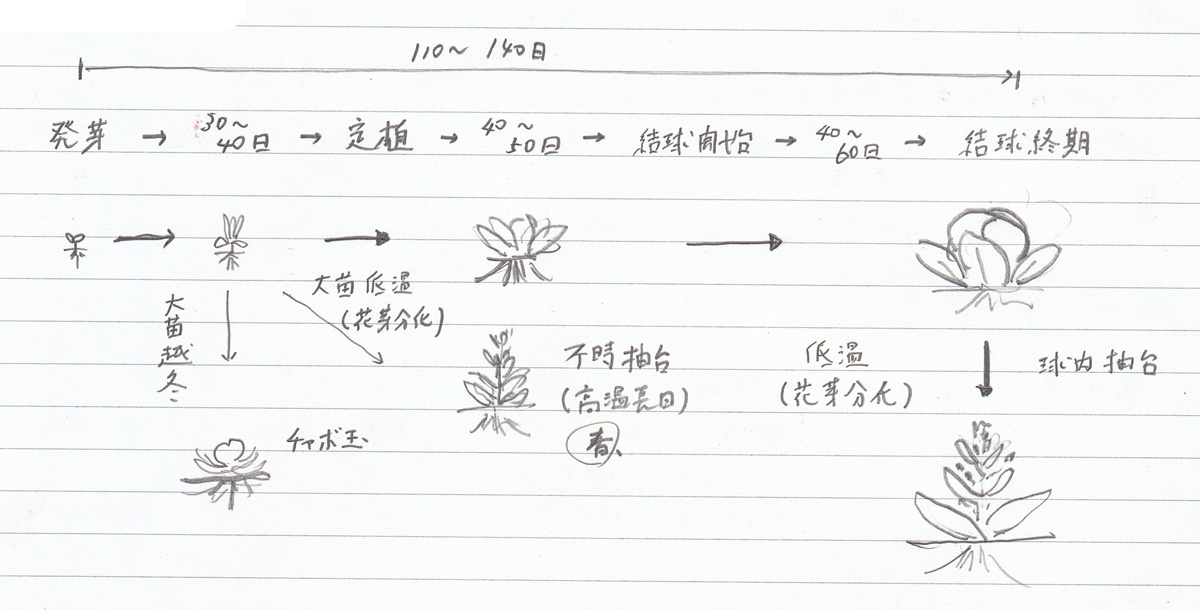 110～140日
発芽 → 30～40日 → 定植 → 40～50日 → 結球開始 → 40～60日 → 結球終期
大苗低温
(花芽分化)
大苗越冬
不時抽台
(高温長日)
春
低温
(花芽分化)
球内抽台
チャボ玉